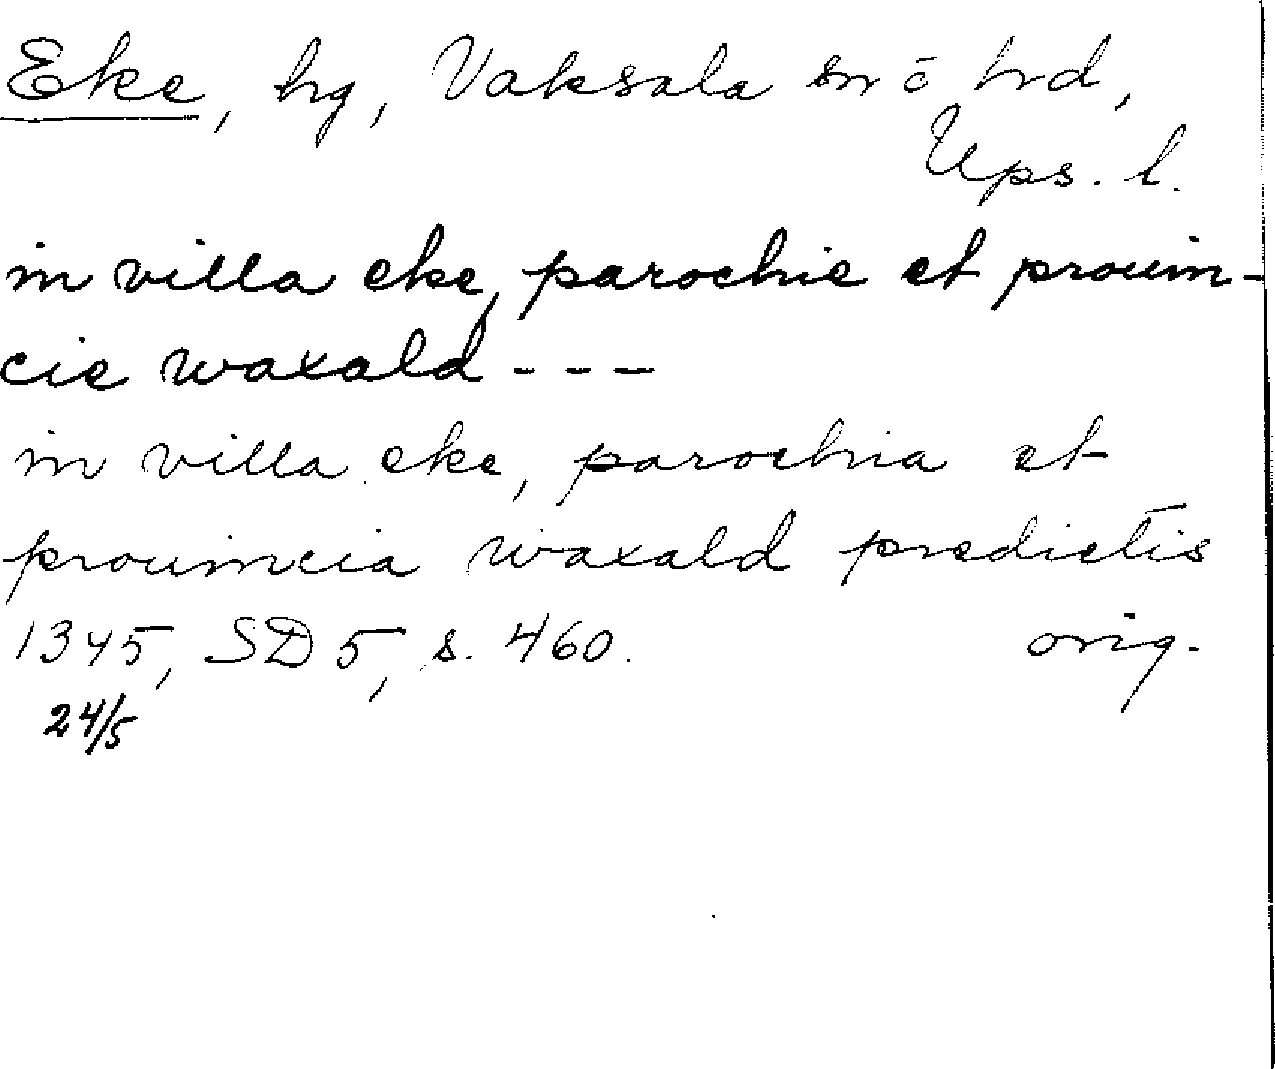 Eke, hg, Vaksala sn o hd,
Ups. l.
in villa eke, parochie et prouin-
cie waxald - - -
in villa eke, parochia et
prouincia waxald predictis
1345, SD 5, s. 460. orig.
24/5